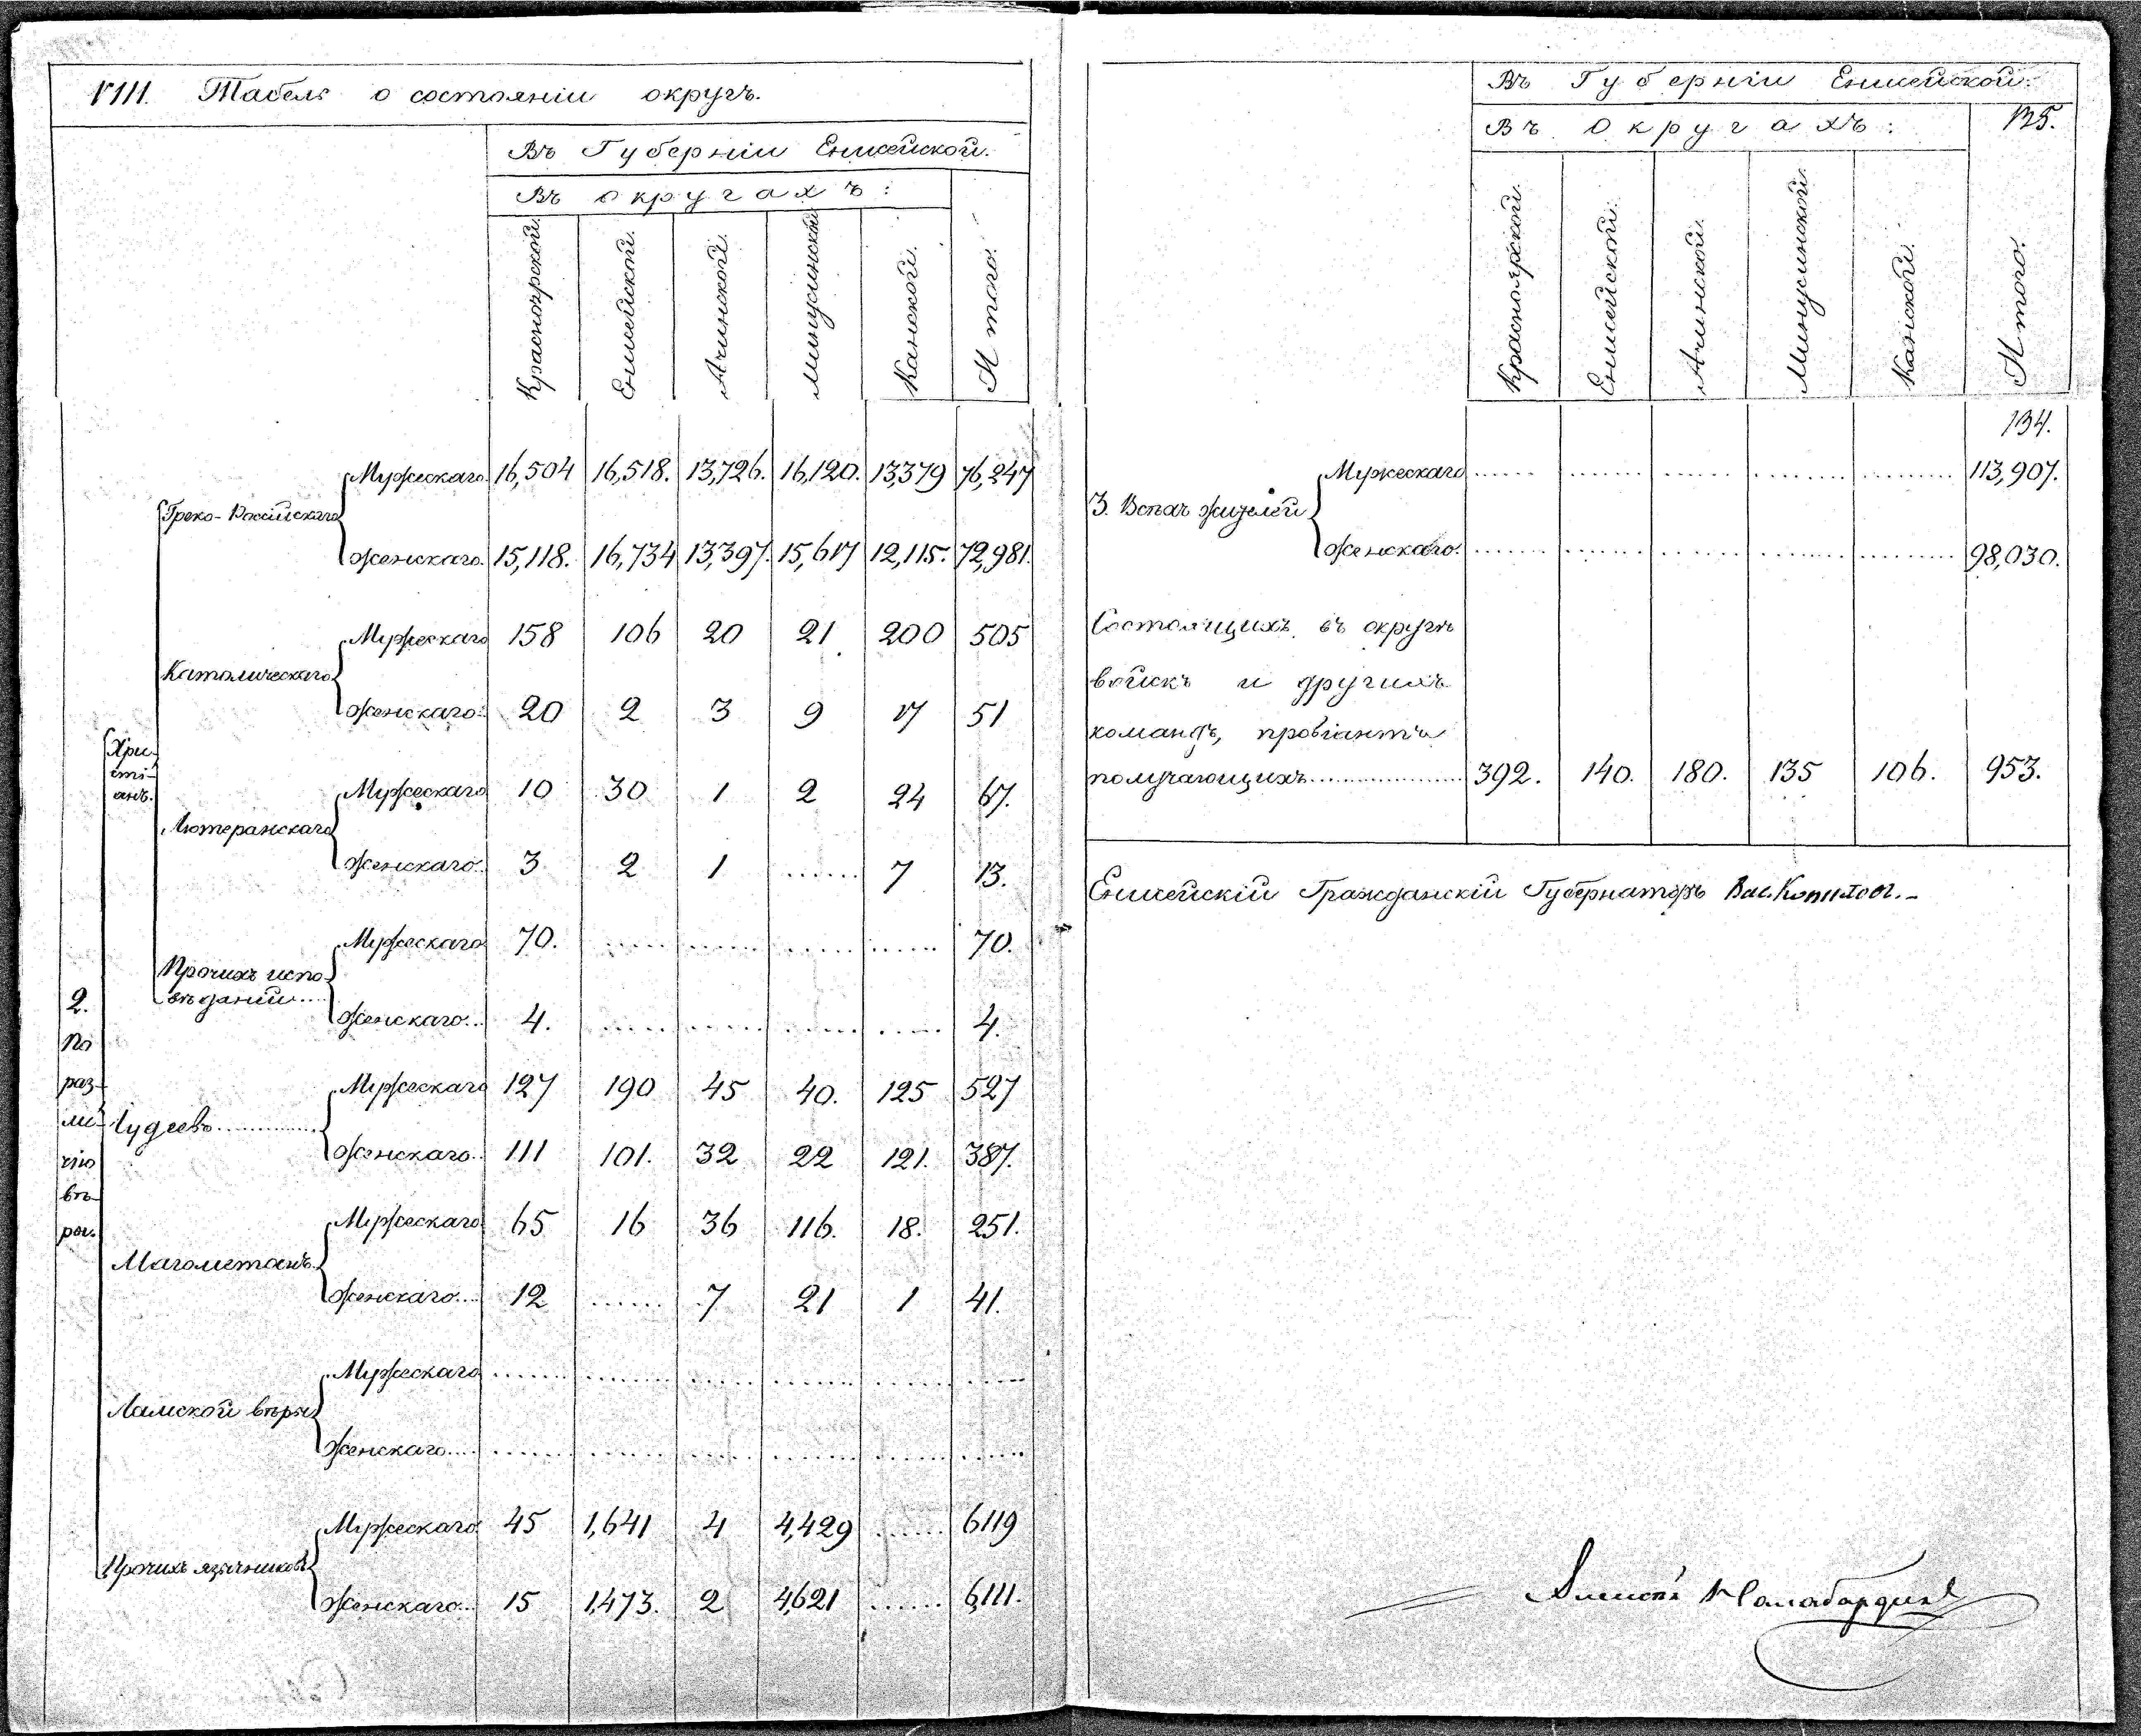 VIII. Табель о состояніи округъ.
Въ Губерніи Енисейской.
Въ округахъ:
Красноярской. Енисейской. Ачинской. Минусинской Канской. Итого.
2. По различію вѣръ.
Христіанъ.
Греко-Россійскаго
Мужескаго 16,504 16,518. 13,726. 16,120. 13,379 76,247
Женскаго. 15,118. 16,734 13,397. 15,617 12,115. 72,981.
Католическаго
Мужескаго 158 106 20 21. 200 505
Женскаго. 20 2 3 9 17 51
Лютеранскаго
Мужескаго 10 30 1 2 24 67.
Женскаго. 3 2 1 ...... 7 13.
Прочихъ испо-
вѣданій....
Мужескаго 70. ...... ...... ...... ...... 70.
Женскаго... 4. ...... ...... ...... ...... 4.
Іудеевъ..............
Мужескаго 127 190 45 40. 125 527
Женскаго.. 111 101. 32 22 121. 387.
Магометанъ.
Мужескаго 65 16 36 116. 18. 251.
Женскаго... 12 ...... 7 21 1 41.
Ламской вѣры
Мужескаго ...... ...... ...... ...... ...... ......
Женскаго.... ...... ...... ...... ...... ...... ......
Прочихъ язычниковъ
Мужескаго 45 1,641 4 4,429 ...... 6119
Женскаго.. 15 1,473. 2 4,621 ...... 6,111.
Въ Губерніи Енисейской.
Въ Округахъ: 135.
Красноярской. Енисейской. Ачинской. Минусинской. Канской. Итого.
134.
3. Всѣхъ жителей
Мужескаго ...... ...... ...... ...... ...... 113,907.
Женскаго. ...... ...... ...... ...... ...... 98,030.
Состоящихъ въ округѣ
войскъ и другихъ
командъ, провіантъ
получающихъ.............. 392. 140. 180. 135 106. 953.
Енисейскій Гражданскій Губернаторъ Вас. Копыловъ.